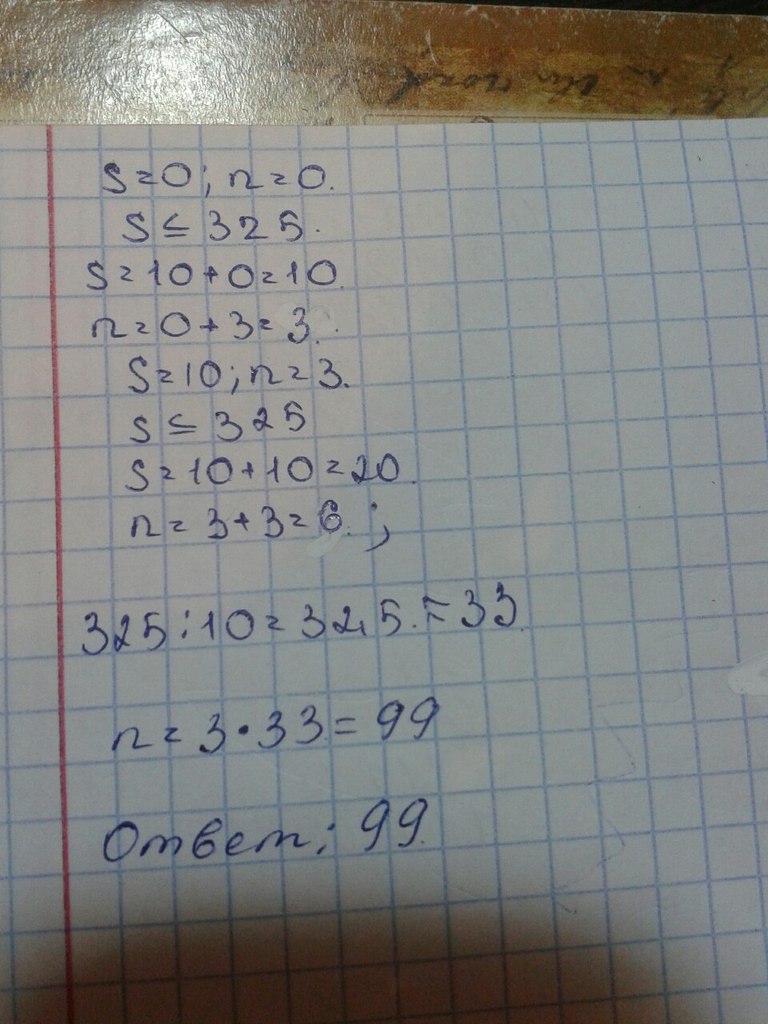 s=0; n=0.
s ≤ 325.
s=10+0=10.
n=0+3=3.
s=10; n=3.
s ≤ 325
s=10+10=20.
n=3+3=6. ;
325:10=32,5.≈33.
n=3·33=99
Ответ: 99.